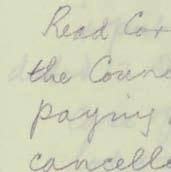 Read Cor
the Counc
paying
cancelle